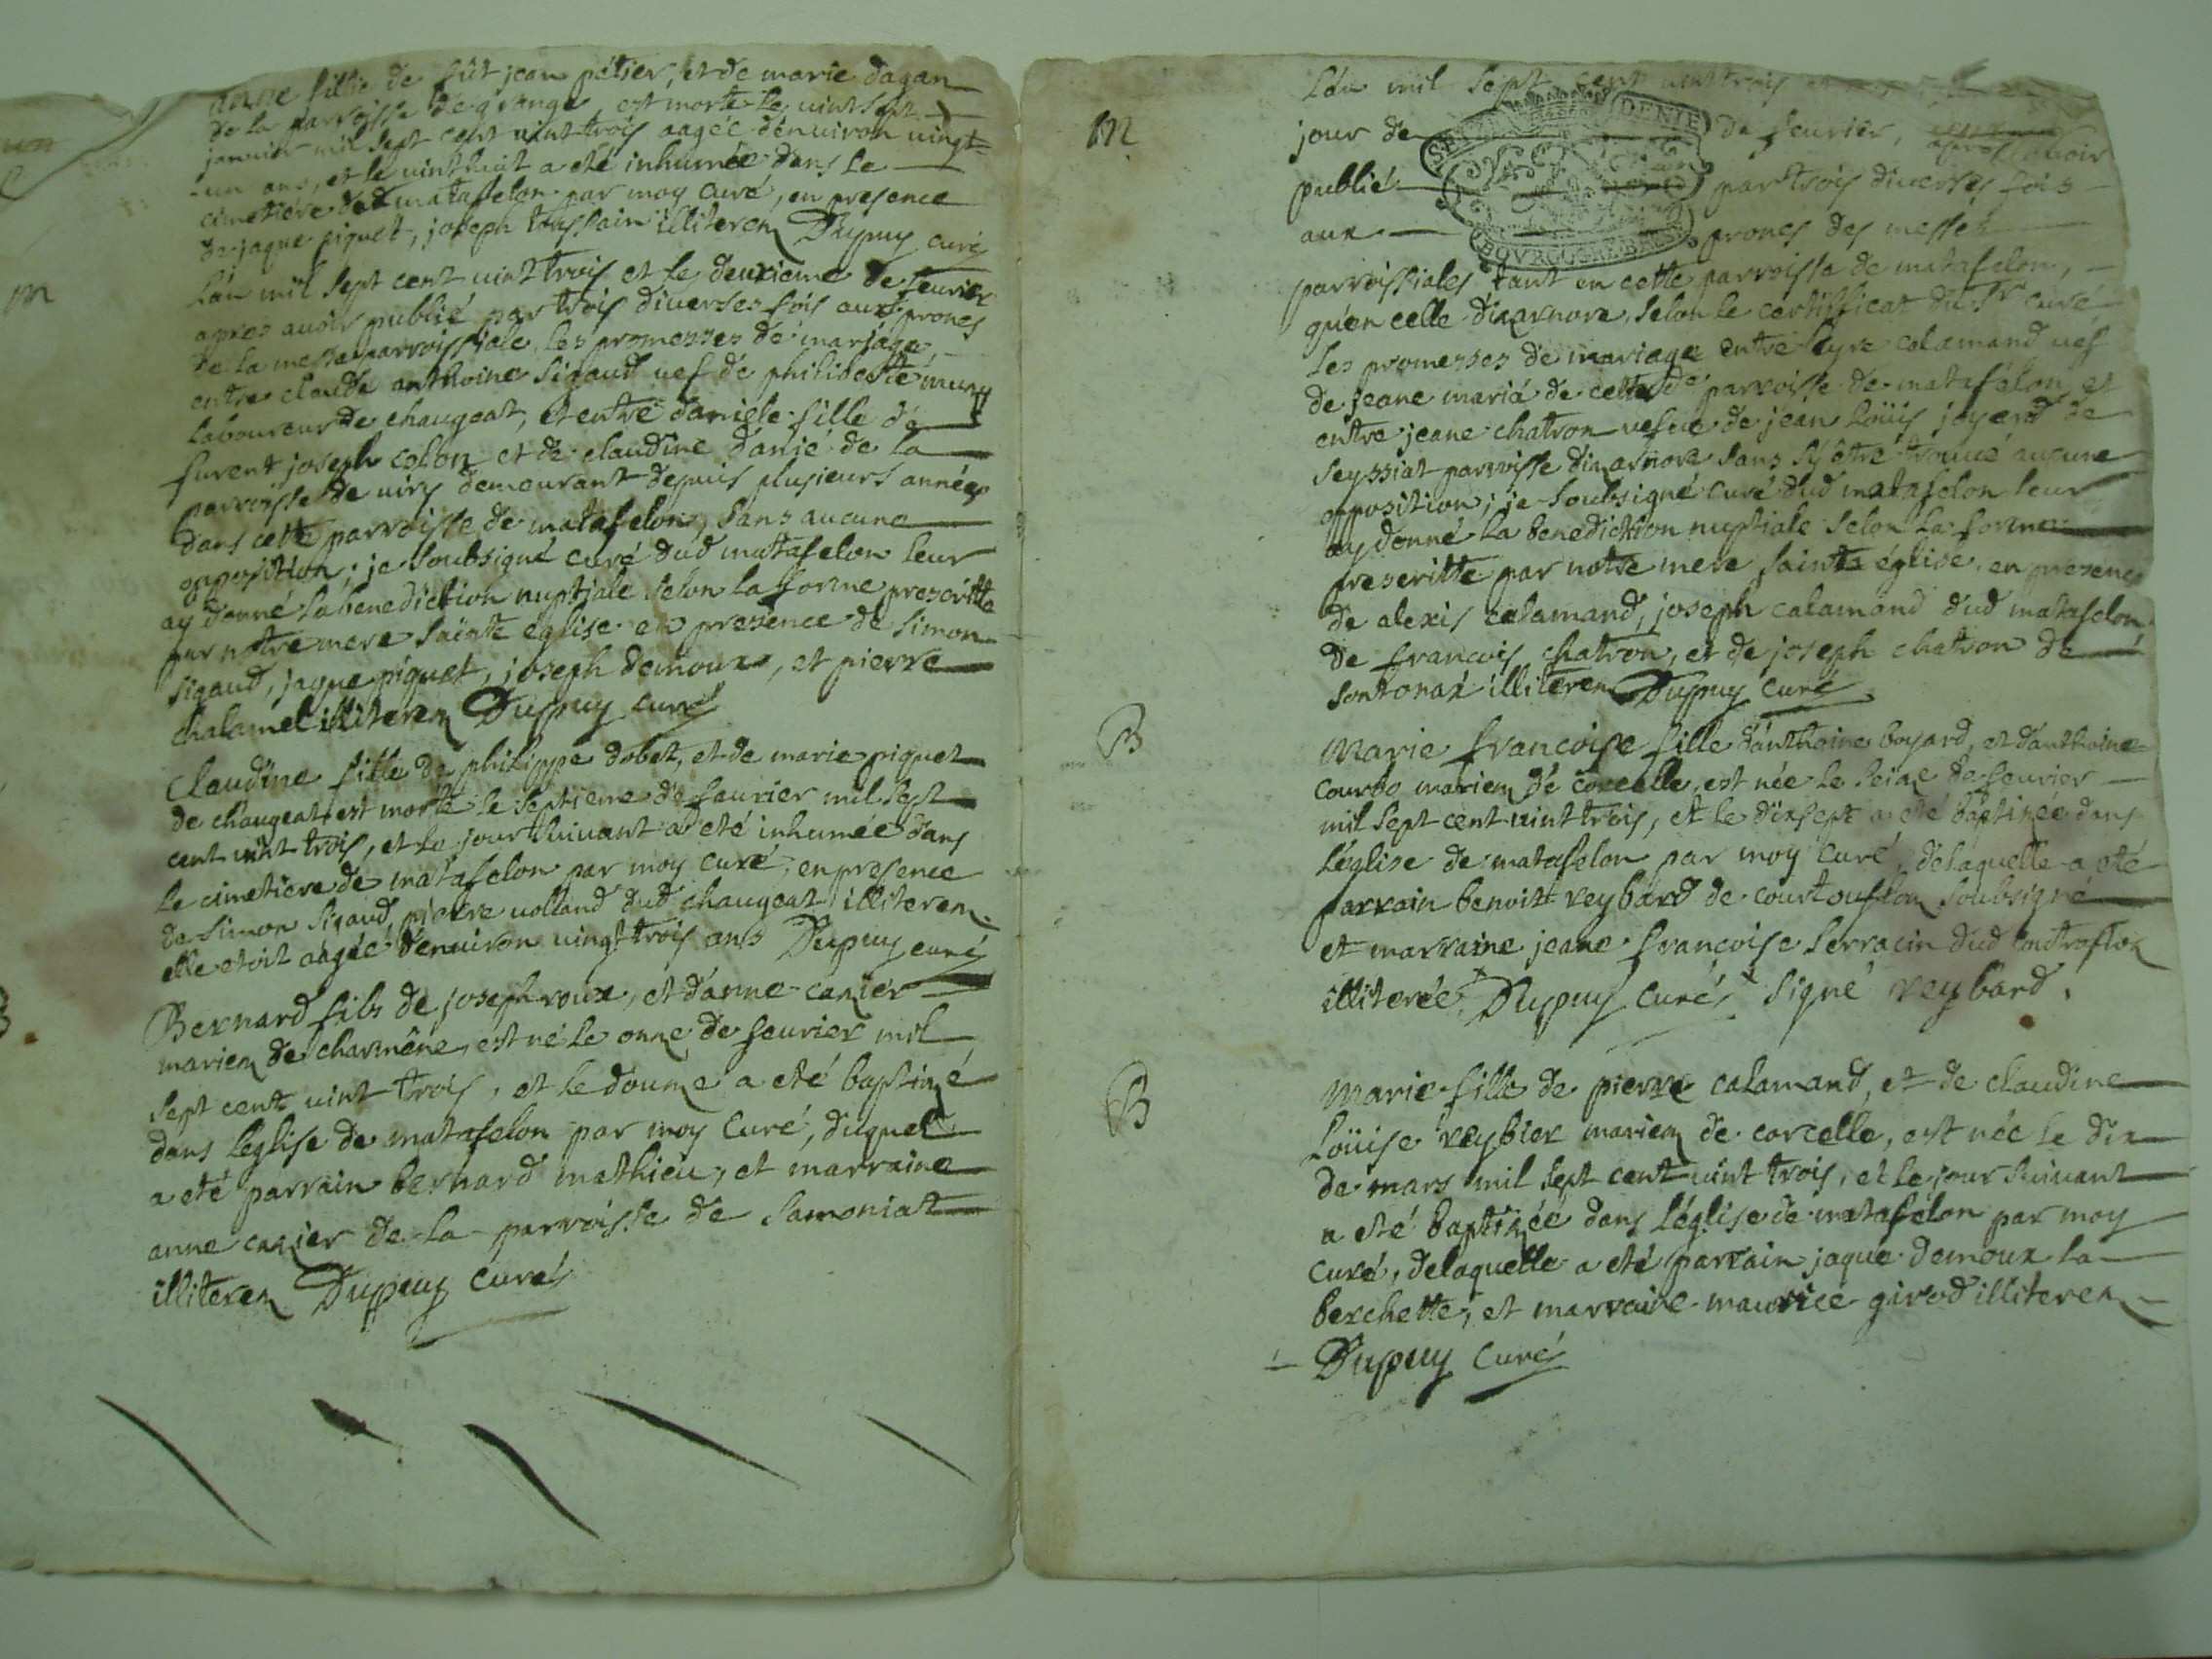 anne fille de fût jean pétier, et de marie dagan
de la parroisse de grange, est morte le vint sept
janvier mil sept cent vint trois aagée d'enuiron vingt=
-un ans, et le vint huit a eté inhumée dans le
cimetiére dud matafelon par moy curé, en presence
de jaque piquet, joseph toussain illiterez Dupuy curé
m
L'an mil sept cent vint trois et le deuxieme de feurier
apres auoir publié par trois diuerses fois aux prones
de la messe parroissiale les promesses de mariage
entre claude anthoine sigaud uef de philiberte muny
laboureur de chaugeat, et entre daniele fille de
furent joseph colon et de claudine danié de la
parroisse de uiry demeurant depuis plusieurs années
dans cette parroisse de matafelon, sans aucune
opposition; je soubsigné curé dud matafelon leur
ay donné la benediction nuptiale selon la forme prescritte
par notre mere sainte eglise en presence de simon
sigaud, jaque piquet, joseph demoux, et pierre
chalamel illiterez Dupuy curé
Claudine fille de philippe dobet, et de marie piquet
de chaugeat est morte le septieme de feurier mil sept
cent vint trois, et le jour suiuant a eté inhumée dans
le cimetiere de matafelon par moy curé, en presence
de simon sigaud, pierre uolland dud chaugeat illiterez
elle etoit aagée d'enuiron vingt trois ans Dupuy curé
B
Bernard fils de joseph roux, et d'anne cazier
mariez de charmêne, est né le onze de feurier mil
sept cent vint trois, et le douze a eté baptizé
dans l'église de matafelon par moy curé, duquel
a eté parrain bernard mathieu, et marraine
anne cazier de la parroisse de samoniat
illiterez Dupuy curé
m
L'an mil sept cent vint trois et
jour de de feurier, apres auoir
publié par trois diuerses fois
aux prones des messes
parroissiales tant en cette parroisse de matafelon,
qu'en celle dizarnore, selon le certifficat du Sr curé
les promesses de mariage entre cyre calamand uef
de jeane maria de cette de parroisse de matafélon, et
entre jeane chatron uefue de jean loüis jayerd de
seyssiat parroisse dizarnore sans s'y être trouué aucune
opposition; je soubsigné curé dud matafelon leur
ay donné la benediction nuptiale selon la forme
prescritte par notre mere sainte église, en presence
de alexis calamand, joseph calamand dud matafelon
de francois chatron, et de joseph chatron de
sontonax illiterez Dupuy curé
B
Marie francoise fille d'anthoine boyard, et d'anthoine=
courbo mariez de corcelle, est née le seize de feurier
mil sept cent vint trois, et le dixsept a eté baptizée dans
l'église de matafelon par moy curé, delaquelle a eté
parrain benoit reybard de courtouflon soubsigné
et marraine jeane francoise serracin dud
illiterée. Dupuy curé signé reybard.
B
Marie fille de pierre calamand, et de claudine
Loüise reybier mariez de corcelle, est née le dix
de mars mil sept cent vint trois, et le jour suiuant
a eté baptizée dans l'église de matafélon par moy
curé, delaquelle a eté parrain jaque demoux la
berchette, et marraine maurice girod illiterez
Dupuy curé